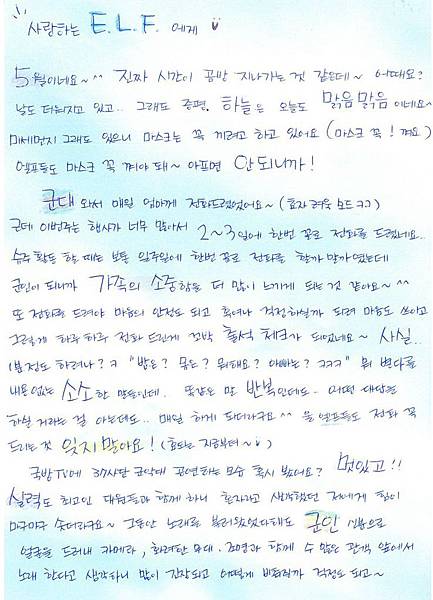 사랑하는 E.L.F. 에게
5월이네요~^^ 진짜 시간이 금방 지나가는 것 같은데~ 어때요?
날도 더워지고 있고.. 그래도 증평 하늘은 오늘도 맑음맑음이네요~
미세먼지 그래도 있으니 마스크는 꼭 끼려고 하고 있어요 (마스크 꼭! 껴요)
엘프들도 마스크 꼭 껴야 돼~ 아프면 안되니까!
군대 와서 매일 엄마께 전화드렸었어요~ (효자 려욱 모드 ㅋㅋ)
근데 이번주는 행사가 너무 많아서 2~3일에 한번 꼴로 전화를 드렸네요..
슈주 활동 할 때는 보통 일주일에 한번 꼴로 전화를 할까 말까였는데
군인이 되니까 가족의 소중함을 더 많이 느끼게 되는 것 같아요~^^
또 전화를 드려야 마음의 안정도 되고 혹여나 걱정하실까 되려 마음도 쓰이고
그렇게 하루하루 전화 드린게 꼬박 출석 체크가 되었네요~ 사실..
1분정도 하려나? ㅋ "밥은? 몸은? 뭐해요? 아빠는? ㅋㅋㅋ" 뭐 별다를
내용 없는 소소한 말들인데. 똑같은 말 반복인데도.. 어떤 대답을
하실 거라는 걸 아는데도.. 매일 하게 되더라구요^^ 울 엘프들도 전화 꼭
드리는 것 잊지 말아요! (효도는 지금부터~)
국방TV에 37사단 군악대 공연하는 모습 혹시 봤어요? 멋있고!!
실력도 최고인 대원들과 함께 하니 혼자라고 생각했던 저에게 힘이
마구마구 솟더라구요~ 그동안 노래를 불러왔었다해도 군인 신분으로
얼굴을 드러내 카메라, 화려한 무대. 조명과 함께 수 많은 관객 앞에서
노래 한다고 생각하니 많이 긴장되고 어떻게 비춰질까 걱정도 되고~